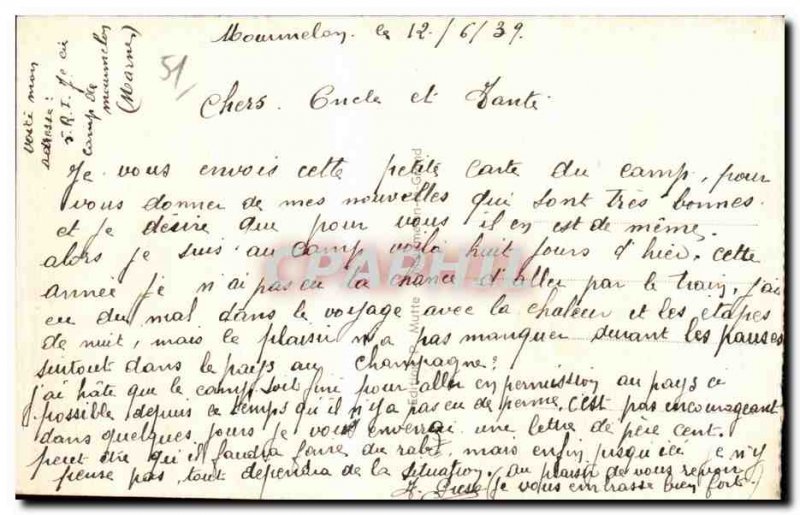 Mourmelon. le 12/6/39.
51
Chers. Oncle et Tante
Je vous envois cette petite carte du camp, pour
vous donner de mes nouvelles qui sont très bonnes.
et je désire que pour vous il en est de même,
alors je suis au camp voilà huit jours d'hier, cette
année je n'ai pas eu la chance d'aller par le train, j'ai
eu du mal dans le voyage avec la chaleur et les étapes
de nuit, mais le plaisir n'a pas manquer durant les pauses
surtout dans le pays au champagne.
j'ai hâte que le camp soit fini pour aller en permission au pays si
possible depuis ce temps qu'il n'y a pas eu de perme. c'est pas encourageant
dans quelques jours je vous enverrai une lettre de père cent.
peut être qu'il faudra faire du rab, mais enfin jusqu'ici je n'y
pense pas, tout dépendra de la situation, au plaisir de vous revoir
(je vous embrasse bien fort.)
voilà mon
adresse:
5. R.I. 7e cie
camp de
mourmelon
(Marne)
Edition Mutte Mourmelon-le-Grand
CPAPHIL